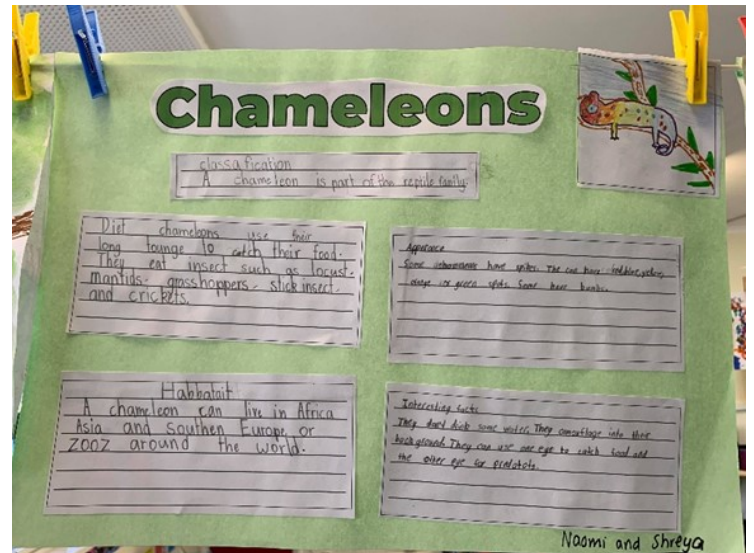 Chameleons
classafication
A chameleon is part of the reptile family.
Diet chameleons use their
long tounge to catch their food.
They eat insect such as locust.
mantids. grasshoppers. stick insect.
and crickets.
Apperance
Some have spikes. The can have yellow,
or green spots. Some have
Habbatait
A chameleon can live in Africa
Asia and southen Europe or
zooz around the world.
Interesting facts
They don't some water. They camouflage into their
backgrounds. They can use one eye to catch food and
the other eye for predators.
Naomi and Shreya